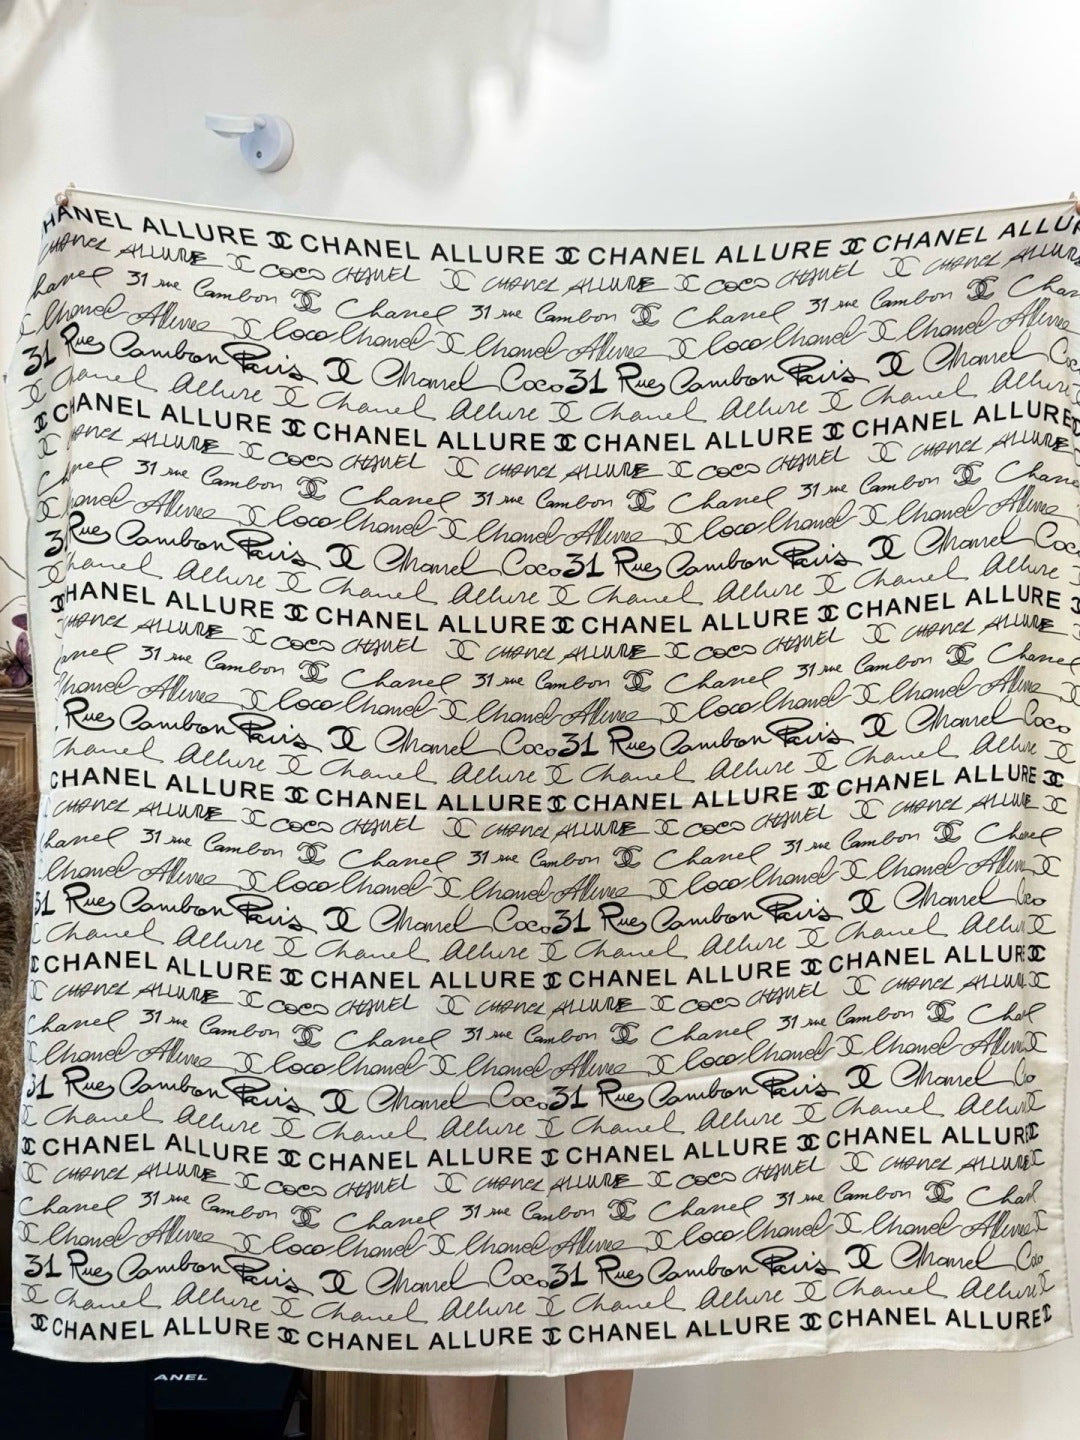 HANEL ALLURE CHANEL ALLURE CHANEL ALLURE CHANEL ALLUR
CHANEL ALLURE COCO CHANEL CHANEL ALLURE COCO CHANEL CHANEL ALLURE
Chanel 31 rue Cambon Chanel 31 rue Cambon Chanel 31 rue Cambon Chan
Chanel Allure Coco Chanel Chanel Allure Coco Chanel Chanel Allure
31 Rue Cambon Paris Chanel Coco 31 Rue Cambon Paris Chanel Coc
Chanel Allure Chanel Allure Chanel Allure Chanel Allure
CHANEL ALLURE CHANEL ALLURE CHANEL ALLURE CHANEL ALLURE
CHANEL ALLURE COCO CHANEL CHANEL ALLURE COCO CHANEL CHANEL ALLURE
Ch nel 31 rue Cambon Chanel 31 rue Cambon Chanel 31 rue Cambon Chane
hanel Allure Coco Chanel Chanel Allure Coco Chanel Chanel Allure
3 Rue Cambon Paris Chanel Coco 31 Rue Cambon Paris Chanel Coc
Chanel Allure Chanel Allure Chanel Allure Chanel Allure
HANEL ALLURE CHANEL ALLURE CHANEL ALLURE CHANEL ALLURE
HANEL ALLURE COCO CHANEL CHANEL ALLURE COCO CHANEL CHANEL ALLURE
anel 31 rue Cambon Chanel 31 rue Cambon Chanel 31 rue Cambon Chanel
hanel Allure Coco Chanel Chanel Allure Coco Chanel Chanel Allure
Rue Cambon Paris Chanel Coco 31 Rue Cambon Paris Chanel Coco
Chanel Allure Chanel Allure Chanel Allure Chanel Allure
CHANEL ALLURE CHANEL ALLURE CHANEL ALLURE CHANEL ALLURE
CHANEL ALLURE COCO CHANEL CHANEL ALLURE COCO CHANEL CHANEL ALLURE
hanel 31 rue Cambon Chanel 31 rue Cambon Chanel 31 rue Cambon Chanel
Chanel Allure Coco Chanel Chanel Allure Coco Chanel Chanel Allure
31 Rue Cambon Paris Chanel Coco 31 Rue Cambon Paris Chanel Coco
Chanel Allure Chanel Allure Chanel Allure Chanel Allure
CHANEL ALLURE CHANEL ALLURE CHANEL ALLURE CHANEL ALLUR
CHANEL ALLURE COCO CHANEL CHANEL ALLURE COCO CHANEL CHANEL ALLUR
Chanel 31 rue Cambon Chanel 31 rue Cambon Chanel 31 rue Cambon Chanel
Chanel Allure Coco Chanel Chanel Allure Coco Chanel Chanel Allure
31 Rue Cambon Paris Chanel Coco 31 Rue Cambon Paris Chanel Co
Chanel Allure Chanel Allure Chanel Allure Chanel Allur
CHANEL ALLURE CHANEL ALLURE CHANEL ALLURE CHANEL ALLUR
CHANEL ALLURE COCO CHANEL CHANEL ALLURE COCO CHANEL CHANEL ALLURE
Chanel 31 rue Cambon Chanel 31 rue Cambon Chanel 31 rue Cambon Chanel
Chanel Allure Coco Chanel Chanel Allure Coco Chanel Chanel Allure
31 Rue Cambon Paris Chanel Coco 31 Rue Cambon Paris Chanel Coco
Chanel Allure Chanel Allure Chanel Allure Chanel Allure
CHANEL ALLURE CHANEL ALLURE CHANEL ALLURE CHANEL ALLURE
ANEL